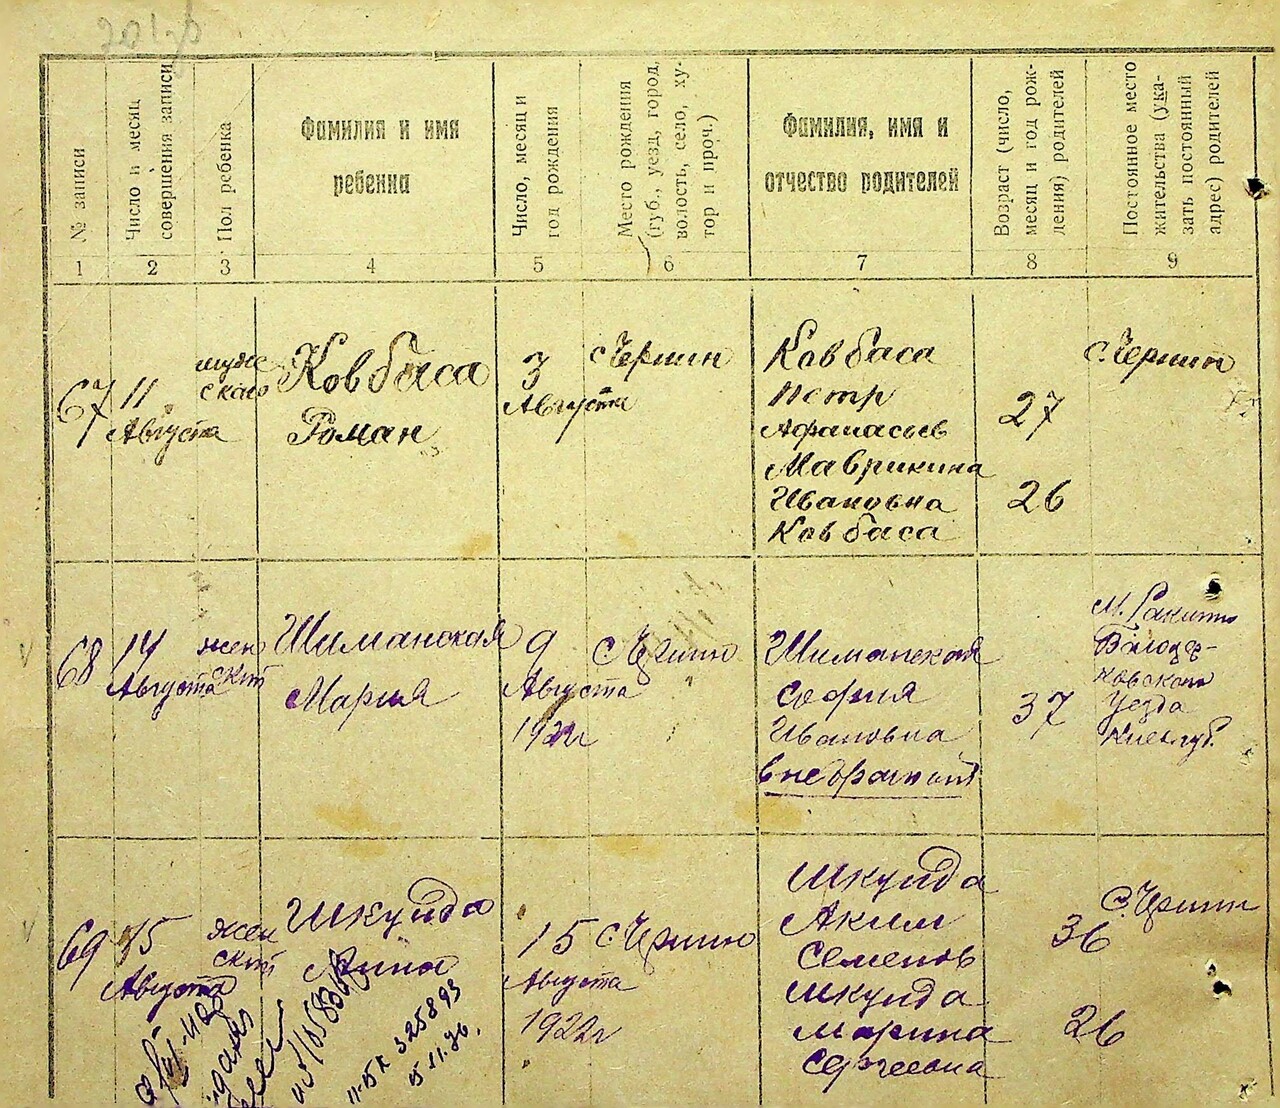 № записи
Число и месяц
совершения записи
Пол ребенка
Фамилия и имя
ребенка
Число, месяц и
год рождения
Место рождения
(губ., уезд, город,
волость, село, ху-
тор и проч.)
Фамилия, имя и
отчество родителей
Возраст (число,
месяц и год рож-
дения) родителей
Постоянное место
жительства (ука-
зать постоянный
адрес) родителей
1 2 3 4 5 6 7 8 9
67
11
Августа
муже
ского
Ковбаса
Роман
3
Августа
с. Чернин
Ковбаса
Петр
Афанасьев
Маврикина
Ивановна
Ковбаса
27
26
с. Чернин
68
14
Августа
жен
ский
Шиманская
Мария
9
Августа
1922г
с. Чернин
Шиманская
София
Ивановна
внебрачный
37
М. Ракитно
уезда
Киев губ.
69
15
Августа
жен
ский
Шкунда
15
Августа
1922г
с. Чернин
Шкунда
Аким
Семенов
Шкунда
Марина
Сергеевна
36
26
с. Чернин
15.11.76.